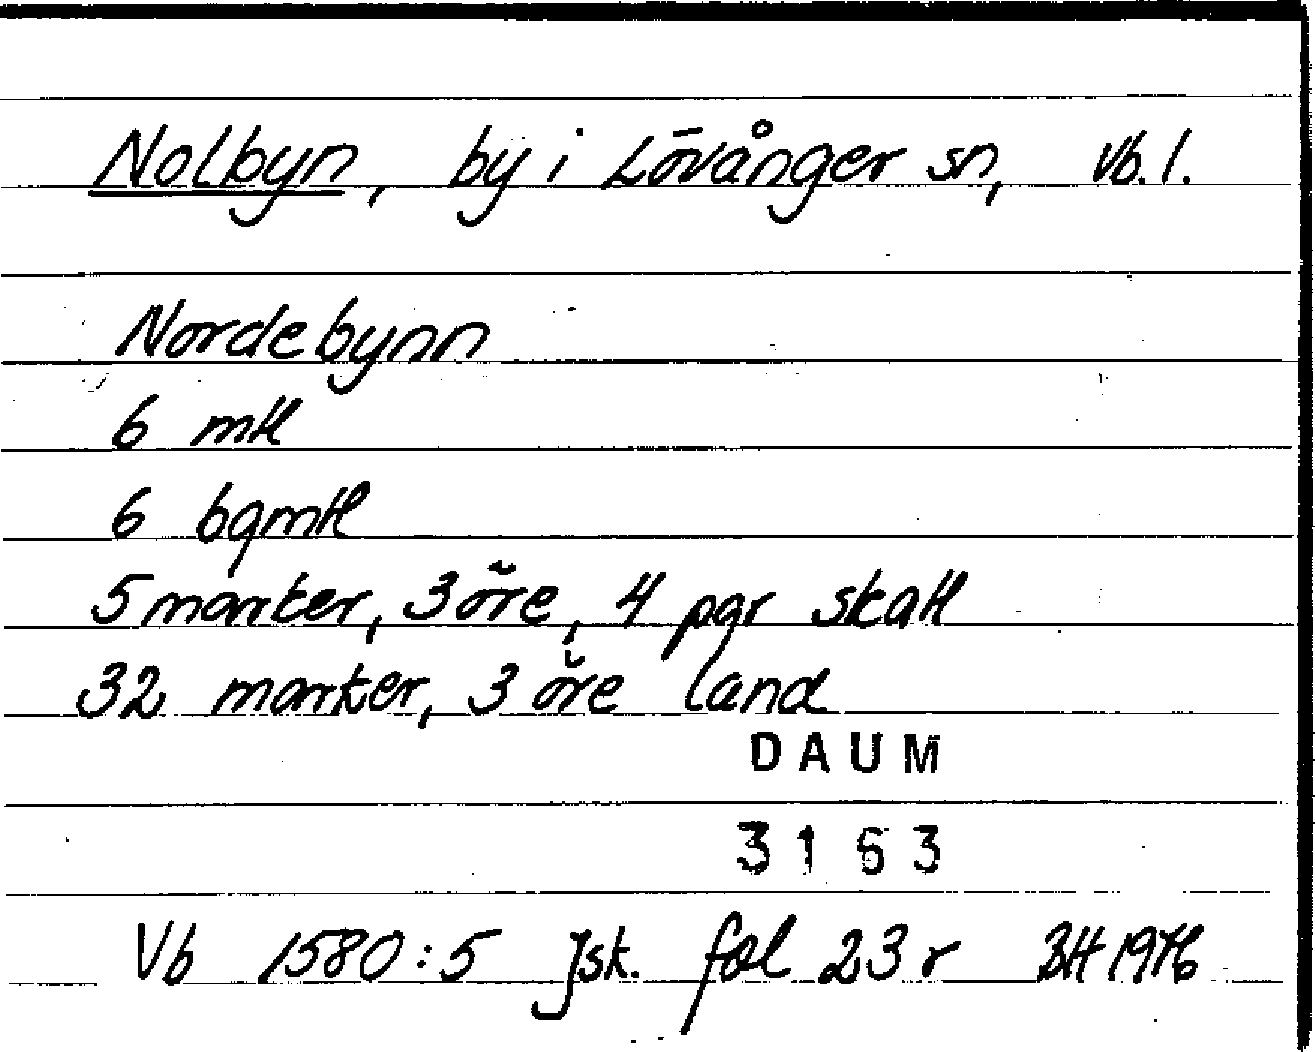 Nolbyn, by i Lövånger sn, Vb. l.
Nordebynn
6 mtl
6 bgmtl
5 marker, 3 öre, 4 pgr skatt
32 marker, 3 öre land
DAUM
3163
Vb 1580:5 Jsk. fol 23 r BH 1976